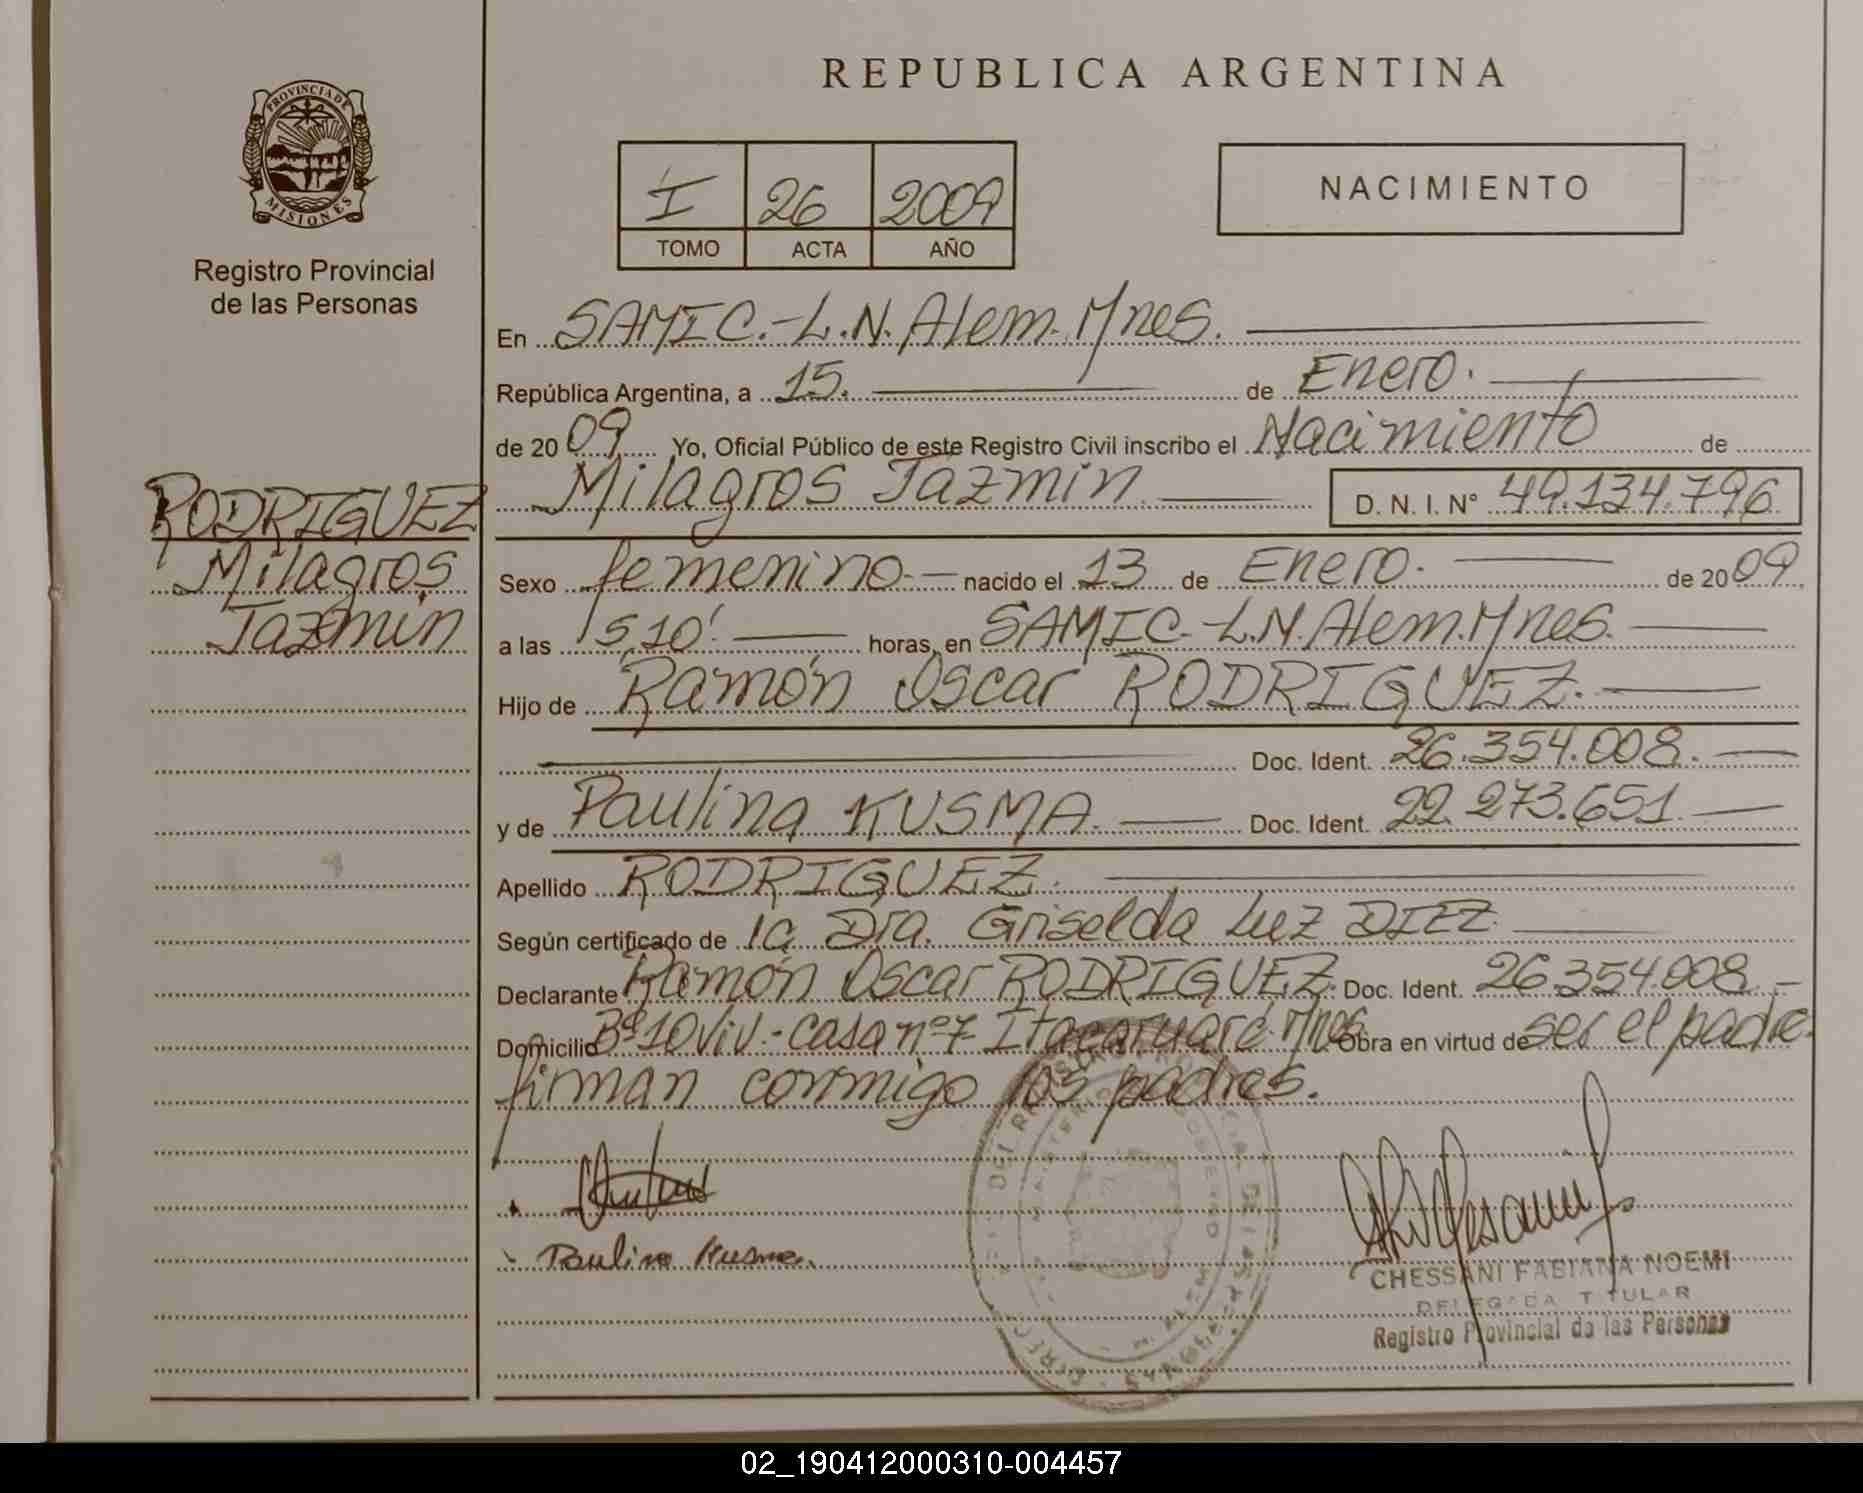 PROVINCIA DE
MISIONES
Registro Provincial
de las Personas
RODRIGUEZ
Milagros
Jazmin
REPUBLICA ARGENTINA
I 26 2009
TOMO ACTA AÑO
NACIMIENTO
En SAMIC.-L.N. Alem. Mnes.
República Argentina, a 15. de Enero.
de 2009 Yo, Oficial Público de este Registro Civil inscribo el Nacimiento de
Milagros Jazmin D. N. I. N° 49.134.796
Sexo femenino.- nacido el 13 de Enero. de 2009
a las 15,10'. horas, en SAMIC.-L.N. Alem. Mnes.
Hijo de Ramón Oscar RODRIGUEZ.
Doc. Ident. 26.354.008.
y de Paulina KUSMA. Doc. Ident. 22.273.651.
Apellido RODRIGUEZ.
Según certificado de la Dra. Griselda Luz DIEZ.
Declarante Ramón Oscar RODRIGUEZ. Doc. Ident. 26.354.008.-
Domicilio Bº 10 Viv.- casa nº 7 Itacaruaré. Mnes. Obra en virtud de ser el padre.
firman conmigo los padres.
Paulina Kusma.
CHESSANI FABIANA NOEMI
DELEGADA TITULAR
Registro Provincial de las Personas
02_190412000310-004457